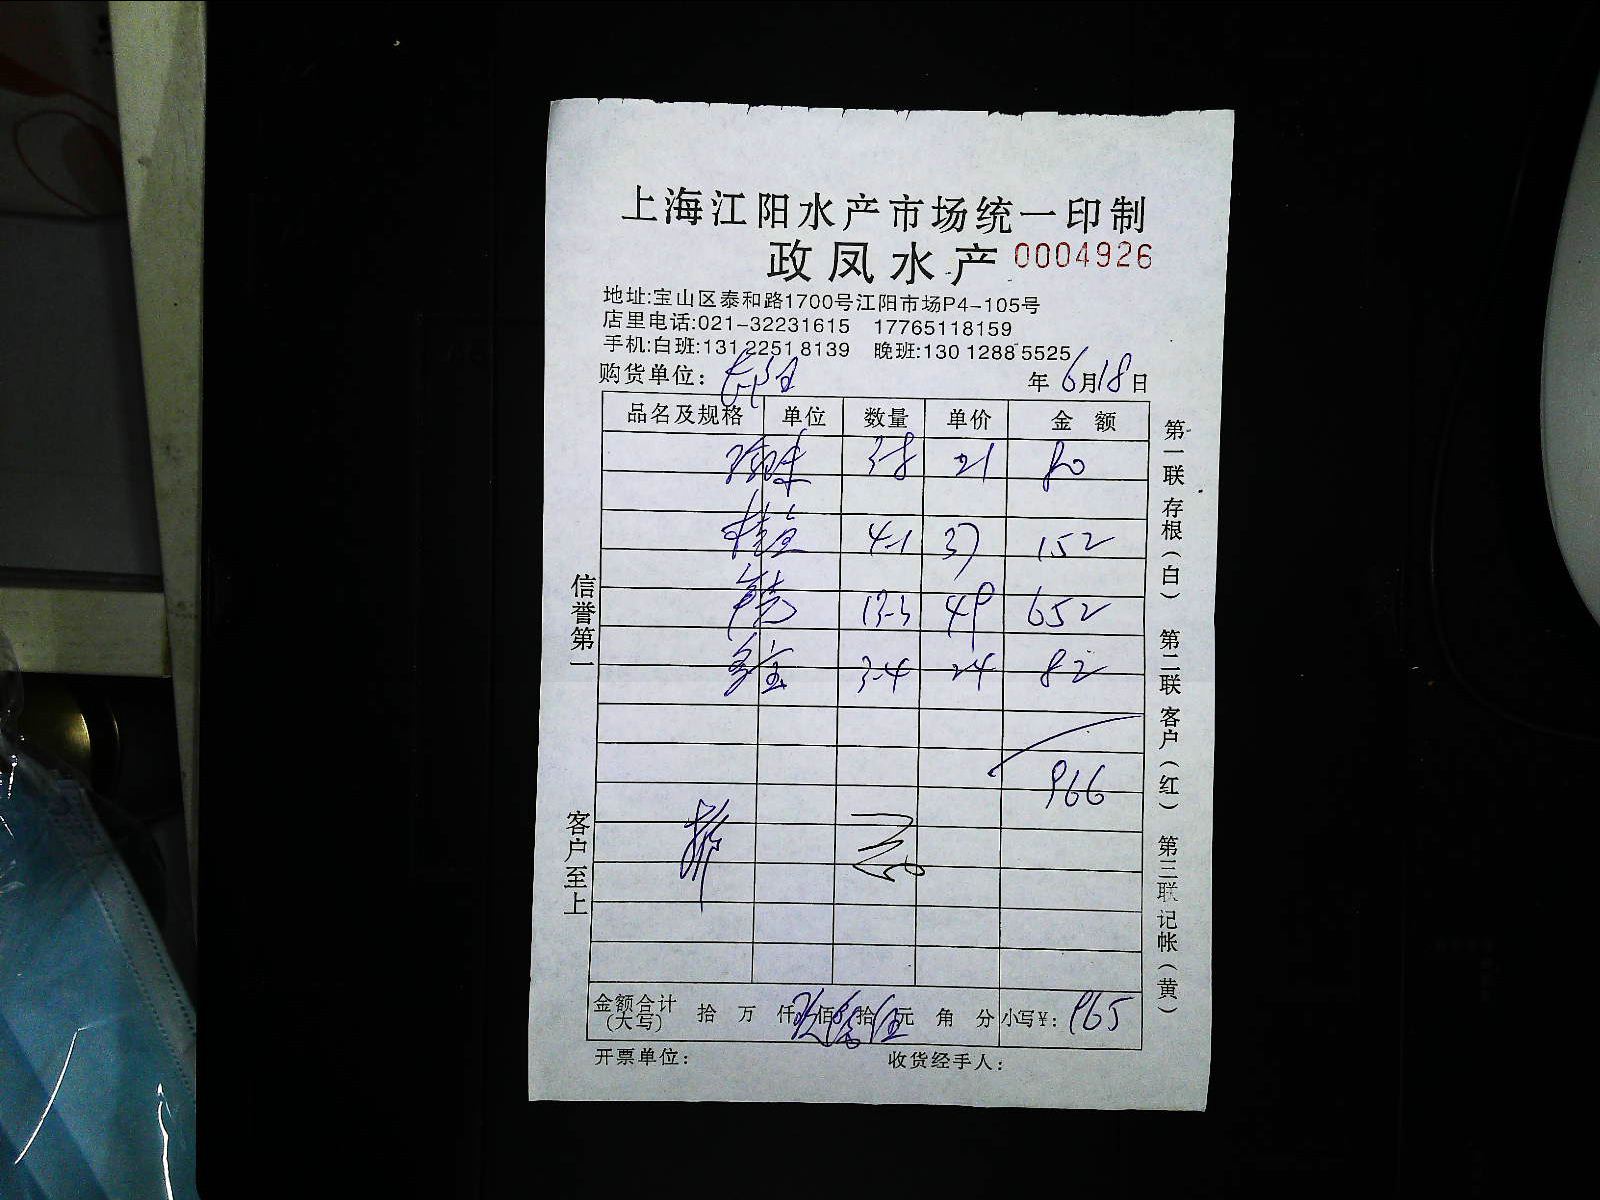 上海江阳水产市场统一印制
政凤水产 0004926
地址:宝山区泰和路1700号江阳市场P4-105号
店里电话:021-32231615 17765118159
手机:白班:131 2251 8139 晚班:130 1288 5525
购货单位: 年 6月18日
品名及规格 单位 数量 单价 金额
3-8 21 80
桂鱼 4-1 37 152
13-3 49 652
多宝 3-4 24 82
966
金额合计(大写) 拾 万 仟 玖佰陆拾伍元 角 分 小写¥: 965
开票单位: 收货经手人:
信誉第一 客户至上
第一联 存根(白) 第二联 客户(红) 第三联 记帐(黄)